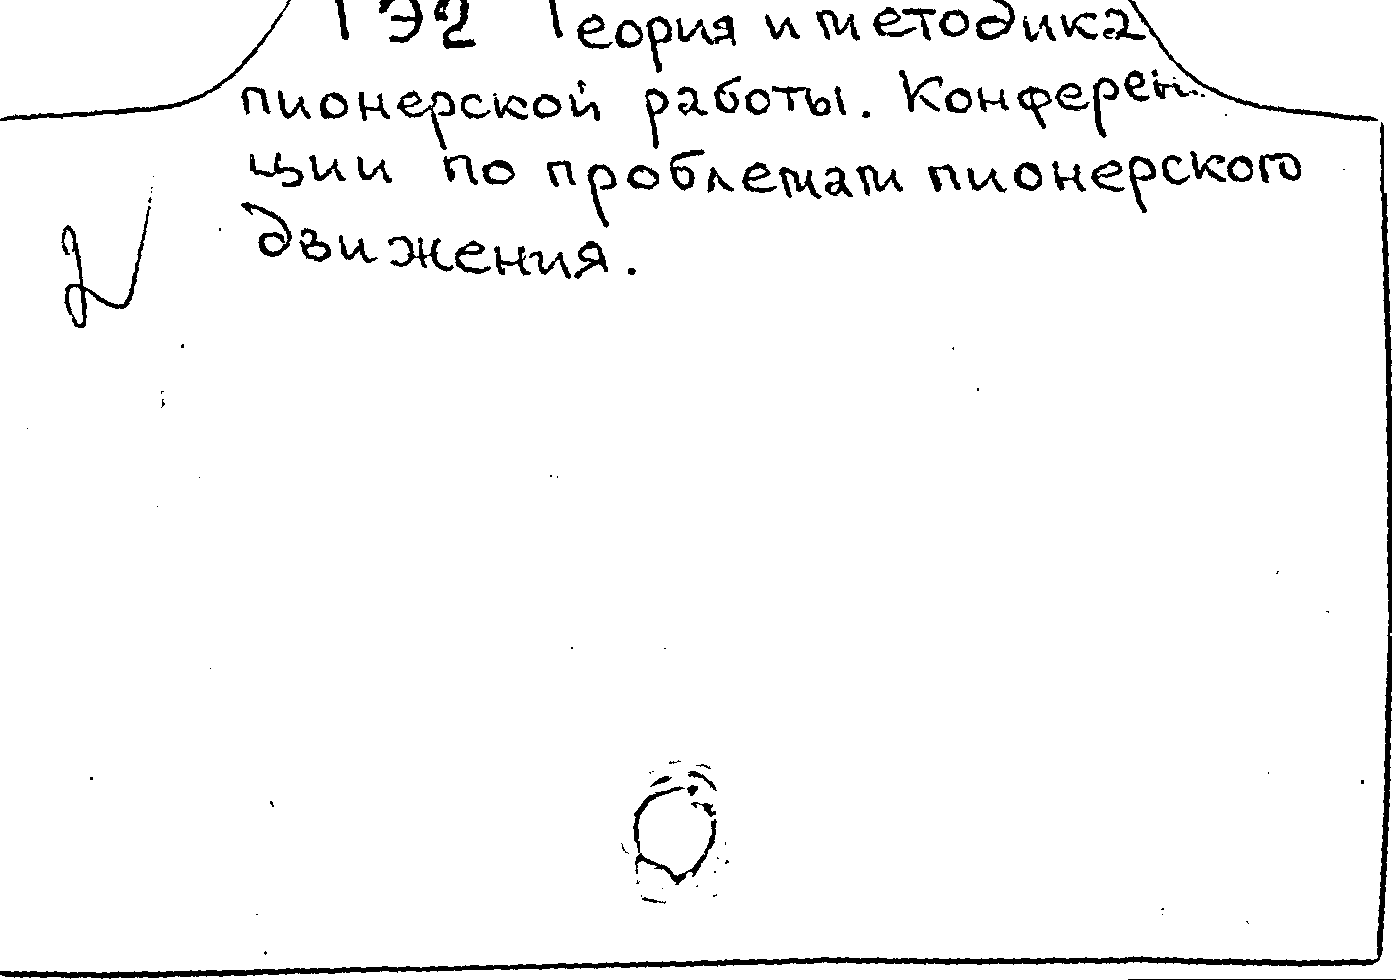 1 Э2 Теория и методика
пионерской работы. Конферен
ции по проблемам пионерского
движения.